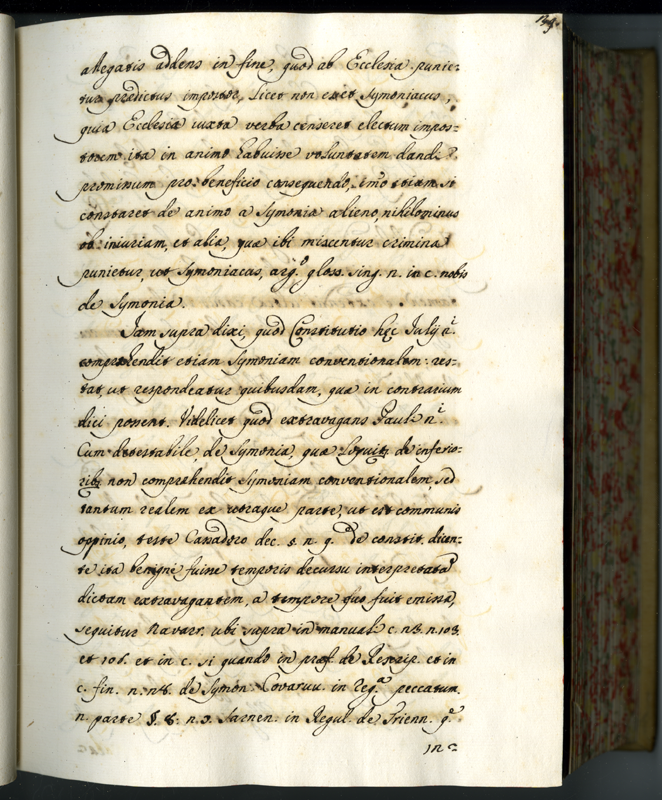 allegatis addens in fine, quod ab Ecclesia punie-
tur predictus impostor, licet non esset Symoniacus,
quia Ecclesia iuxta verba censeret electum impos-
torem ita in animo habuisse voluntatem dandi
prominum pro beneficio consequendo, imo etiam si
constaret de animo a Symonia alieno, nihilominus
ob iniuriam, et alia, quæ ibi miscentur crimina
punietur, ut Symoniacus, arg.º gloss. sing. n. in c. nobis
de Symonia.
Iam supra dixi, quod Constitutio hęc Iulij n.i
comprehendit etiam Symoniam conventionalem: res-
tat, ut respondeatur quibusdam, quæ in contrarium
dici possent. Videlicet quod extravagans Pauli n.i
Cum detestabile de Symonia, quæ loquitr de inferio-
ribz non comprehendit Symoniam conventionalem, sed
tantum realem ex utraque parte, ut est communis
oppinio, teste Casadoro dec. s. n. 9. de constit. dicen-
te ita benignè fuisse temporis decursu interpretatā
dictam extravagantem, a tempore quo fuit emissa,
sequitur Navarr. ubi supra in manuali c. n3. n. 103.
et 106. et in c. si quando in præf. de Rescrip. et in
c. fin. n. n8. de Symon. Covaruu. in reg.a peccatum
n. parte §. 8. n. 3. Sarnen. in Regul. de Trienn. q.º
in c